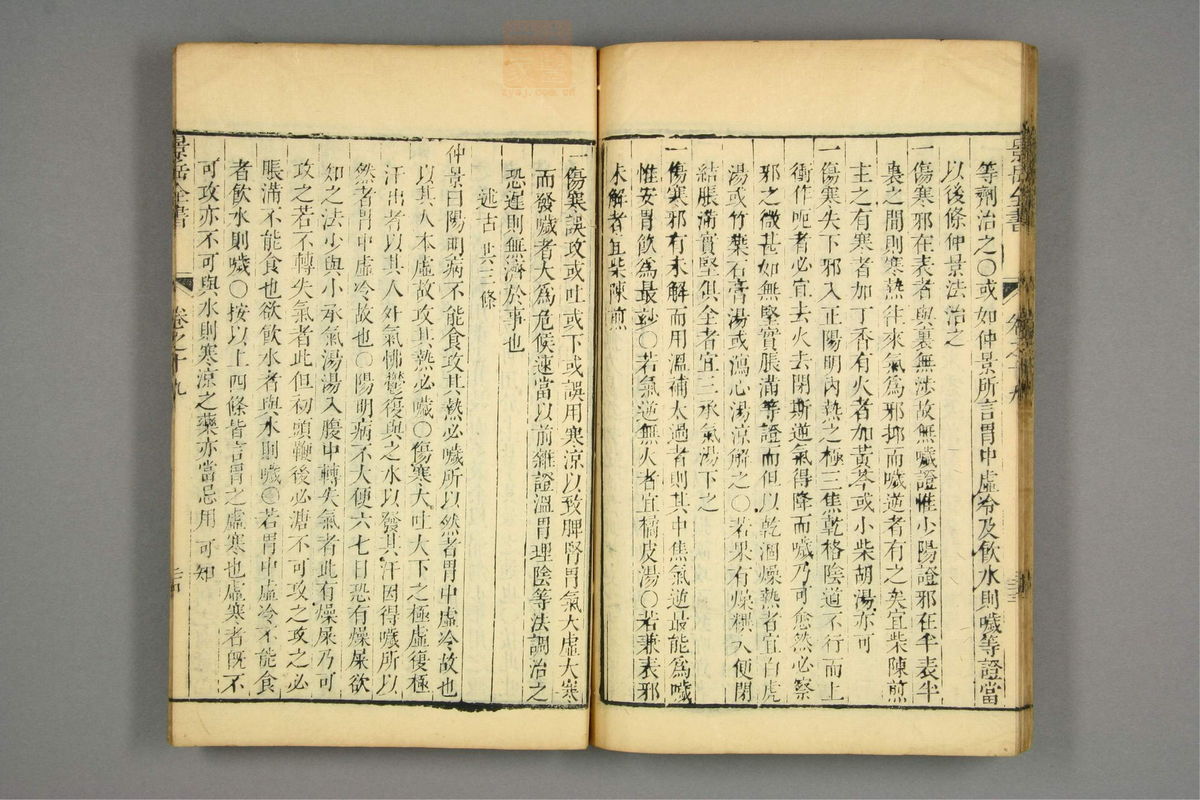 景岳全書
卷之十九
等劑治之〇或如仲景所言胃中虛冷及飲水則噦等證當
以後條仲景法治之
一傷寒邪在表者與裏無涉故無噦證惟少陽證邪在半表半
裏之間則寒熱往來氣爲邪抑而噦逆者有之矣宜柴陳煎
主之有寒者加丁香有火者加黃芩或小柴胡湯亦可
一傷寒失下邪入正陽明內熱之極三焦乾格陰道不行而上
衝作呃者必宜去火去閉斯逆氣得降而噦乃可愈然必察
邪之微甚如無堅實脹滿等證而但以乾涸燥熱者宜白虎
湯或竹葉石膏湯或瀉心湯涼解之〇若果有燥糞大便閉
結脹滿實堅俱全者宜三承氣湯下之
一傷寒邪有未解而用溫補太過者則其中焦氣逆最能爲噦
惟安胃飲爲最妙〇若氣逆無火者宜橘皮湯〇若兼表邪
未解者宜柴陳煎
一傷寒誤攻或吐或下或誤用寒涼以致脾腎胃氣大虛大寒
而發噦者大爲危候速當以前雜證溫胃理陰等法調治之
恐遲則無濟於事也
述古 共三條
仲景曰陽明病不能食攻其熱必噦所以然者胃中虛冷故也
以其人本虛故攻其熱必噦〇傷寒大吐大下之極虛復極
汗出者以其人外氣怫鬱復與之水以發其汗因得噦所以
然者胃中虛冷故也〇陽明病不大便六七日恐有燥屎欲
知之法少與小承氣湯湯入腹中轉失氣者此有燥屎乃可
攻之若不轉失氣者此但初頭鞭後必溏不可攻之攻之必
脹滿不能食也欲飲水者與水則噦〇若胃中虛冷不能食
者飲水則噦〇按以上四條皆言胃之虛寒也虛寒者旣不
可攻亦不可與水則寒涼之藥亦當忌用可知
景岳全書
卷之十九
二十四
zysj.com.cn